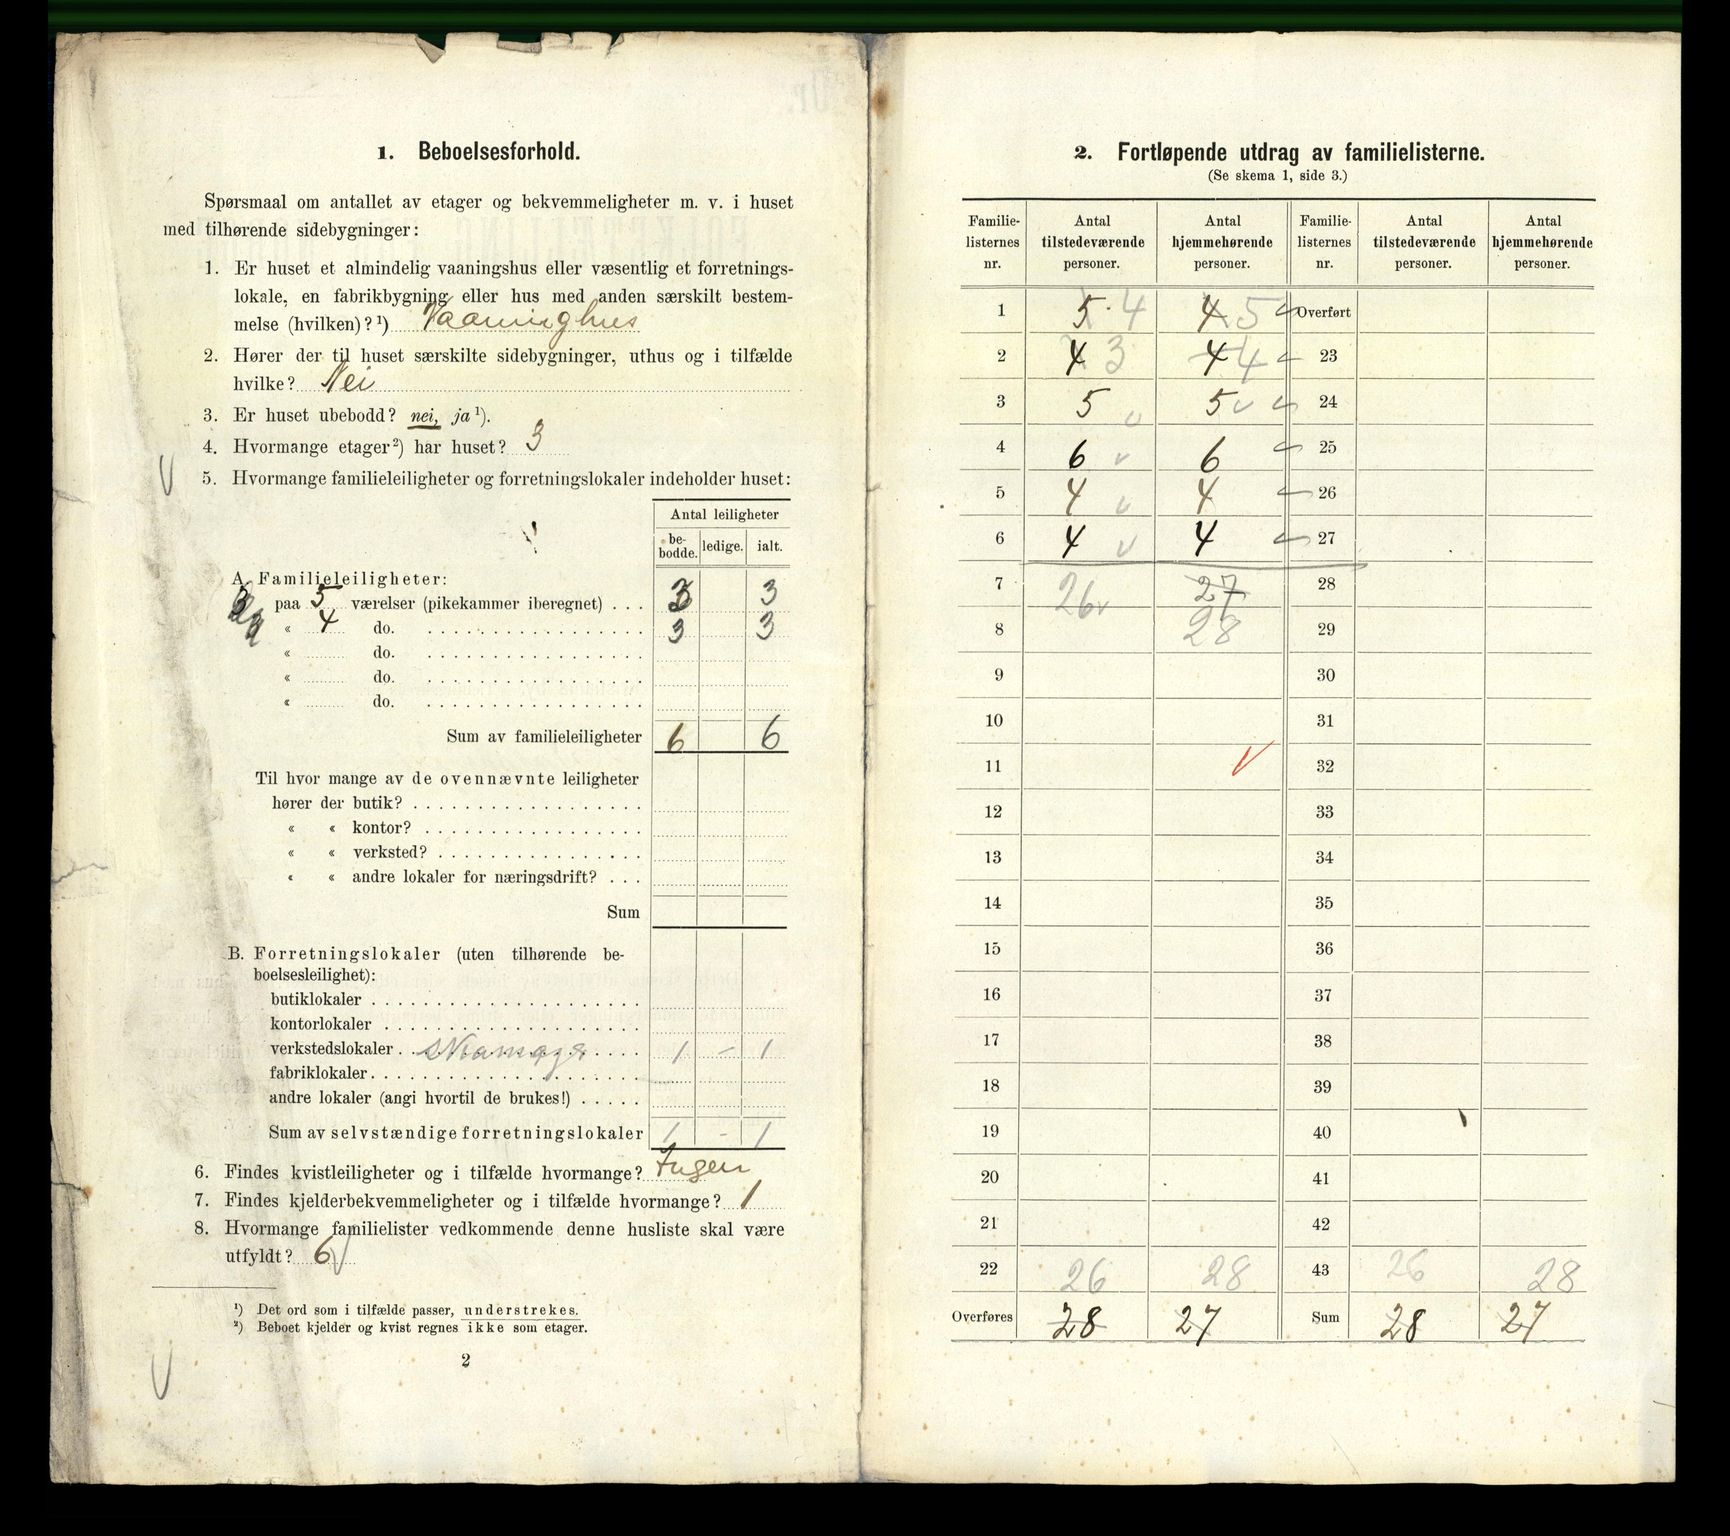 1. Beboelsesforhold.
Spørsmaal om antallet av etager og bekvemmeligheter m. v. i huset
med tilhørende sidebygninger:
1. Er huset et almindelig vaaningshus eller væsentlig et forretnings-
lokale, en fabrikbygning eller hus med anden særskilt bestem-
melse (hvilken)? ¹) Vaaninghus
2. Hører der til huset særskilte sidebygninger, uthus og i tilfælde
hvilke? Nei
3. Er huset ubebodd? nei, ja ¹).
4. Hvormange etager ²) har huset? 3
5. Hvormange familieleiligheter og forretningslokaler indeholder huset:
Antal leiligheter
be-bodde. ledige. ialt.
A. Familieleiligheter:
paa 5 værelser (pikekammer iberegnet) . . . 3 3
« 4 do. . . . 3 3
« do.
« do.
« do.
Sum av familieleiligheter 6 6
Til hvor mange av de ovennævnte leiligheter
hører der butik?
« « kontor?
« « verksted?
« « andre lokaler for næringsdrift?
Sum
B. Forretningslokaler (uten tilhørende be-
boelsesleilighet):
butiklokaler
kontorlokaler
verkstedslokaler 1 – 1
fabriklokaler
andre lokaler (angi hvortil de brukes!)
Sum av selvstændige forretningslokaler 1 - 1
6. Findes kvistleiligheter og i tilfælde hvormange? Ingen
7. Findes kjelderbekvemmeligheter og i tilfælde hvormange? 1
8. Hvormange familielister vedkommende denne husliste skal være
utfyldt? 6
¹) Det ord som i tilfælde passer, understrekes.
²) Beboet kjelder og kvist regnes ikke som etager.
2
2. Fortløpende utdrag av familielisterne.
(Se skema 1, side 3.)
Familie-listernes nr. Antal tilstedeværende personer. Antal hjemmehørende personer. Familie-listernes nr. Antal tilstedeværende personer. Antal hjemmehørende personer.
1 5 4 4 5 Overført
2 4 3 4 4 23
3 5 5 24
4 6 6 25
5 4 4 26
6 4 4 27
7 26 27 28
8 28 29
9 30
10 31
11 32
12 33
13 34
14 35
15 36
16 37
17 38
18 39
19 40
20 41
21 42
22 26 28 43 26 28
Overføres 28 27 Sum 28 27